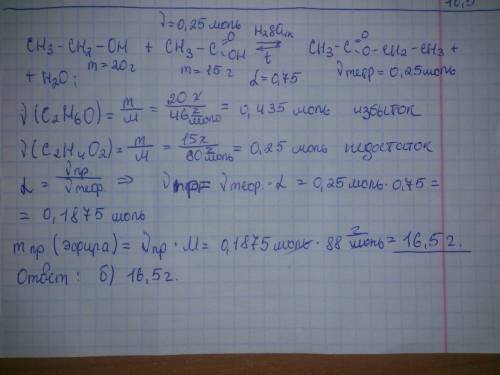 ν=0,25 моль
CH₃-CH₂-OH + CH₃-C(=O)OH ⇄ (H₂SO₄к, t) CH₃-C(=O)O-CH₂-CH₃ +
m=20г m=15г α=0,75 νтеор.=0,25моль
+ H₂O;
ν(C₂H₆O) = m/M = 20 г / 46 г/моль = 0,435 моль избыток
ν(C₂H₄O₂) = m/M = 15г / 60 г/моль = 0,25 моль недостаток
α = νпр/νтеор ⇒ νпр = νтеор·α = 0,25 моль·0,75 =
= 0,1875 моль
mпр (эфира) = νпр·M = 0,1875 моль · 88 г/моль = 16,5 г.
Ответ: б) 16,5г.